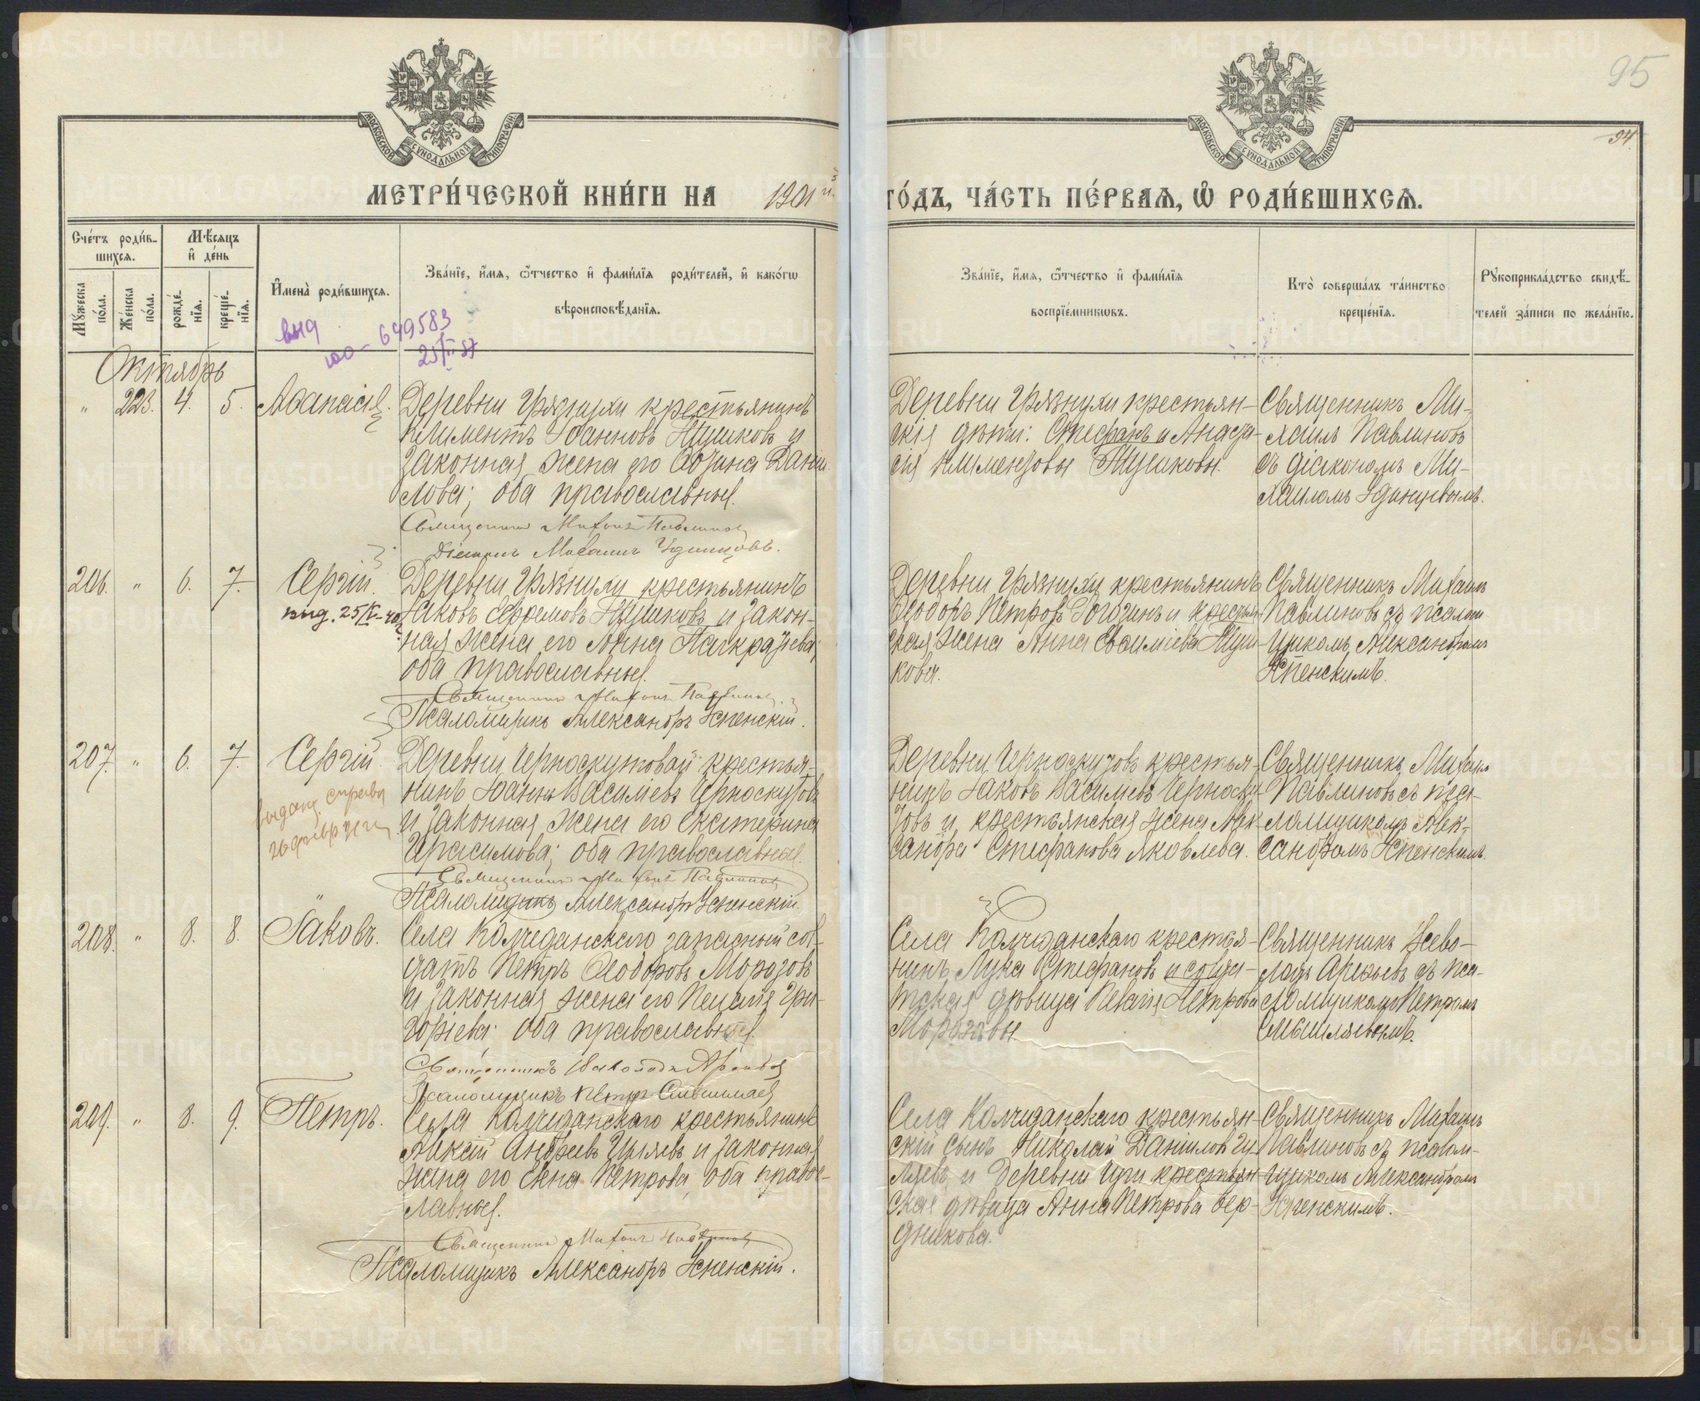 95
94.
МЕТРИ́ЧЕСКОЙ КНИ́ГИ НА 1901й
ГО́ДЪ, ЧА́СТЬ ПЕ́РВАЯ, Ѡ҆ РОДИ́ВШИХСЯ.
Сче́тъ роди́в-
шихся.
Мѣ́сяцъ
и҆ де́нь
Му́жеска по́ла.
Же́нска по́ла.
рожде́-
нїя.
креще́-
нїя.
И҆мена̀ роди́вшихся.
Зва́нїе, и҆́мя, ѻ҆́тчество и҆ фами́лїя роди́телей, и҆ како́гѡ
вѣроисповѣ́данїя.
Зва́нїе, и҆́мя, ѻ҆́тчество и҆ фами́лїя
воспрїе́мниковъ.
Кто̀ соверша́лъ та́инство
креще́нїя.
Рꙋкоприкла́дство свидѣ́-
телей за́писи по жела́нїю.
649583
Октябрь
" 223. 4. 5.
Деревни Грязнухи крестьянинъ
Климентъ Іоанновъ Нушковъ и
законная жена его
лова; оба православные.
Священникъ
Діаконъ Михаилъ Удинцовъ.
Деревни Грязнухи крестьян-
скія дѣти: Стефанъ и Анаста-
сія Климентовы
Священникъ Ми-
хаилъ Павлиновъ
съ діакономъ Ми-
хаиломъ Удинцевымъ.
206. " 6. 7. Сергій.
Деревни Грязнухи крестьянинъ
Іаковъ Ефремовъ Нушковъ и закон-
ная жена его Анна Панкратьева;
оба православные.
Священникъ
Псаломщикъ Александръ Успенскій.
Деревни Грязнухи крестьянинъ
Ѳеодоръ Петровъ и крестьян-
ская жена Анна
кова.
Священникъ Михаилъ
Павлиновъ съ псалом-
щикомъ Александромъ
Успенскимъ.
207. " 6. 7. Сергій.
Деревни Черноскутовой крестья-
нинъ Іоаннъ Васильевъ Черноскутовъ
и законная жена его Екатерина
Герасимова; оба православные.
Священникъ
Псаломщикъ Александръ Успенскій.
Деревни Черноскутовой крестья-
нинъ Іаковъ Васильевъ Черноску-
товъ и крестьянская жена Алек-
сандра Стефанова Яковлева.
Священникъ Михаилъ
Павлиновъ съ пса-
ломщикомъ Алек-
сандромъ Успенскимъ.
208. " 8. 8. Іаковъ.
Села Колчеданскаго запасный сол-
датъ Петръ Ѳеодоровъ Морозовъ
и законная жена его Пелагія Гри-
горіева; оба православные.
Священникъ Всеволодъ Арефьевъ
Псаломщикъ Петръ
Села Колчеданскаго крестья-
нинъ Лука Стефановъ и солда-
тская дѣвица Пелагія Петрова
Морозовы.
Священникъ Всево-
лодъ Арефьевъ съ пса-
ломщикомъ Петромъ
209. " 8. 9. Петръ.
Села Колчеданскаго крестьянинъ
Алексій Андреевъ и законная
жена его Елена Петрова, оба правос-
лавные.
Священникъ
Псаломщикъ Александръ Успенскій.
Села Колчеданскаго крестьян-
скій сынъ Николай Даніиловъ
и деревни крестьян-
ская дѣвица Анна Петрова Бер-
дникова.
Священникъ Михаилъ
Павлиновъ съ псалом-
щикомъ Александромъ
Успенскимъ.